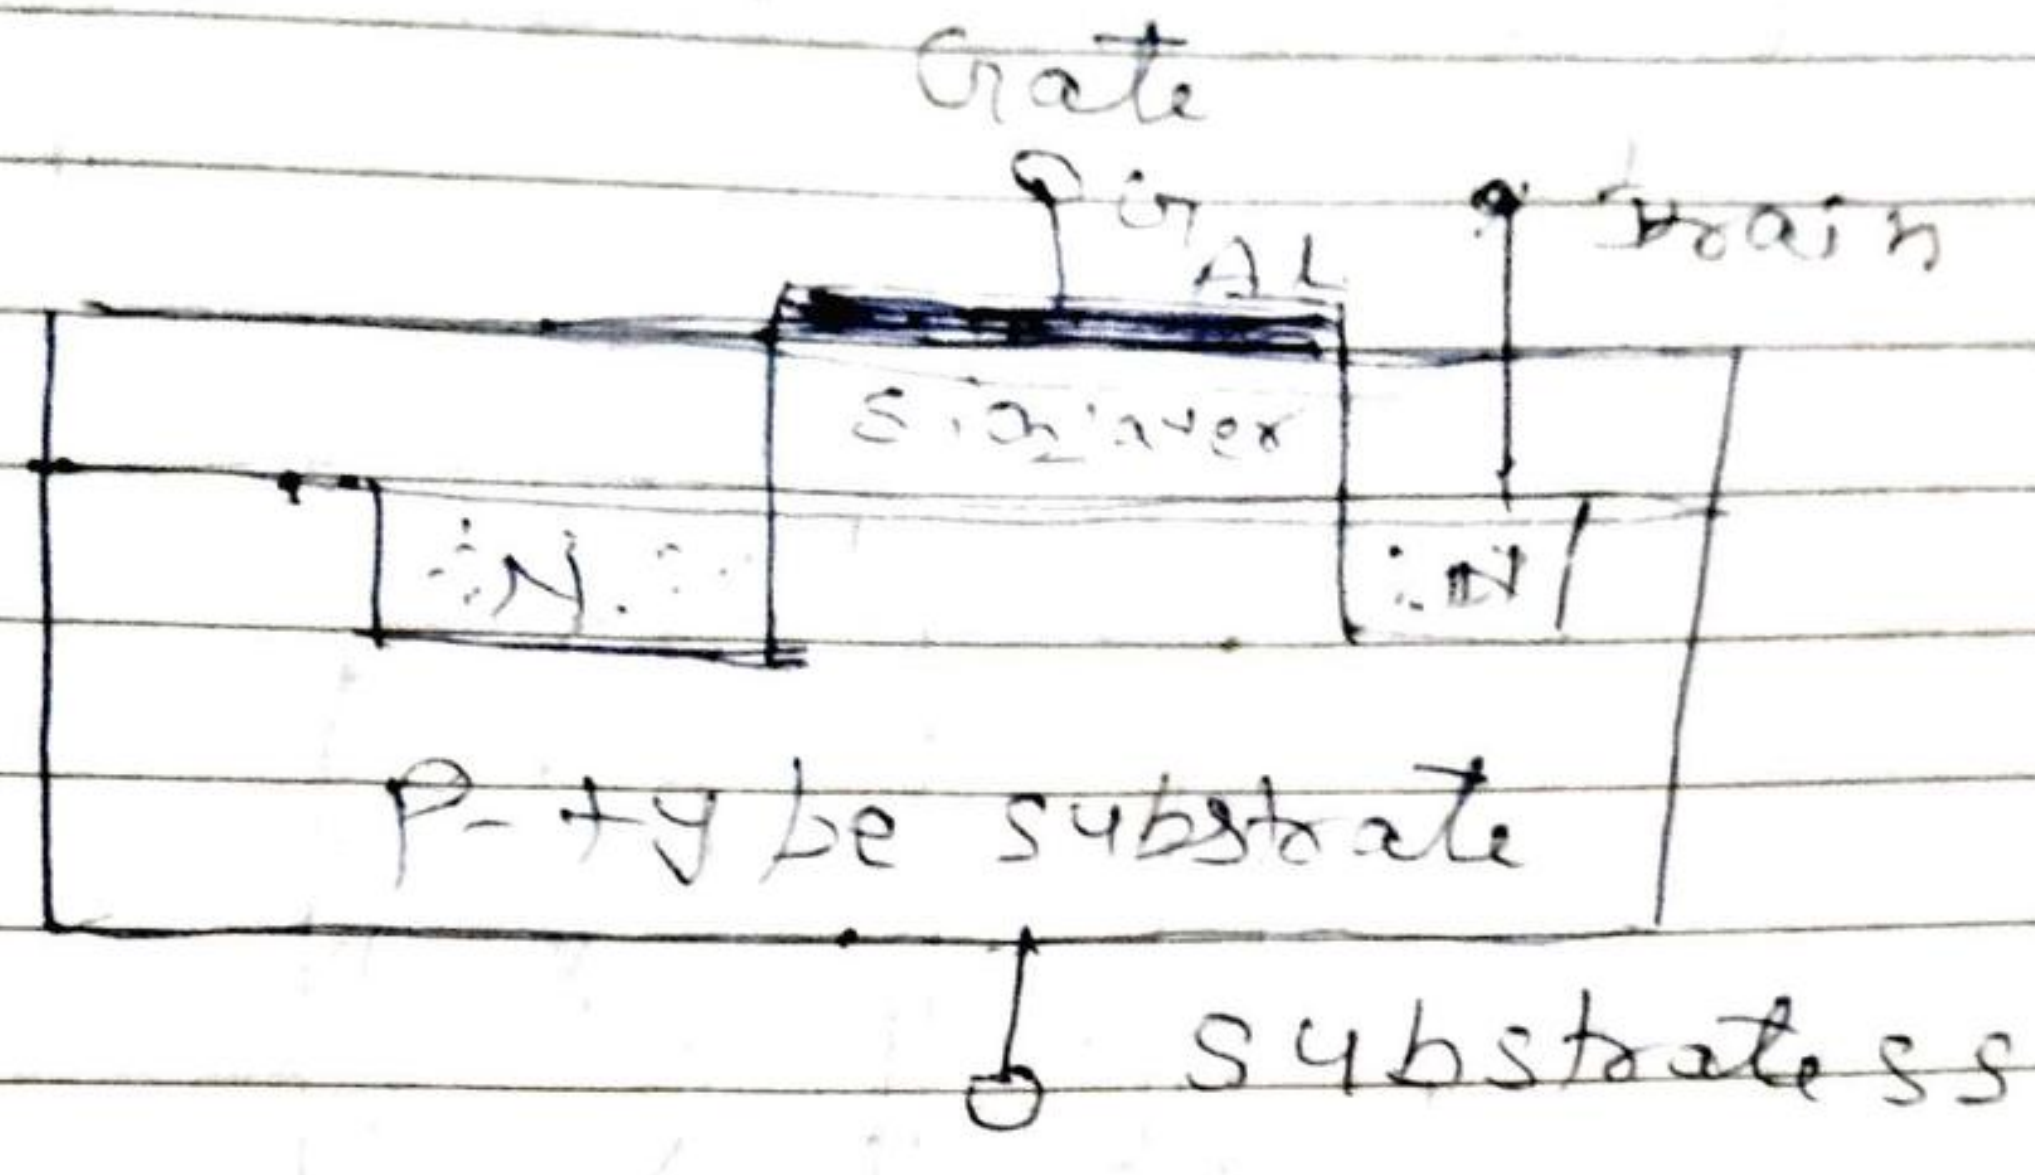 Gate
G
Drain
AL
SiO2 layer
N
N
P-tybe substrate
substrate ss